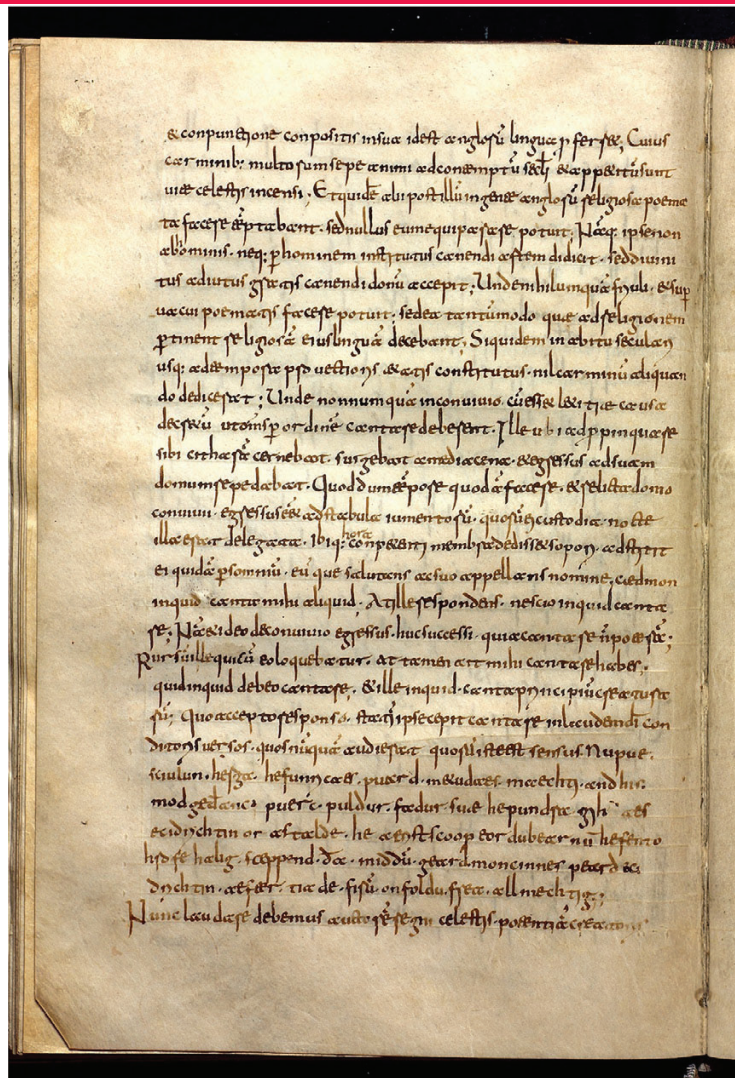 & conpunctione conpositis in sua id est anglorū lingua pferr&; Cuius
carminib: multorum sepe animi ad contemptū secli & app&itū sunt
uitae celestis incensi; Et quidē alii post illū in gente anglorū religiosa poema
ta facere tēptabant. sed nullus eum equiparare potuit; Nāq: ipse non
ab ominis. neq: p hominem institutus canendi artem didicit. sed diuini
tus adiutus gratis canendi donū accepit; Unde nihil umquā friuli. & sup
uacui poematis facere potuit. sed ea tantūmodo quae ad religionem
ptinent religiosā eius linguā decebant; Siquidem in abitu seculari
usq: ad tempora prouectioris &atis constitutus. nil carminū aliquan
do didicerat; Unde nonnumquā in conuiuio. cū ess& l&itiae causa
decr&ū ut oms p ordinē cantare deberent. Ille ubi adppinquare
sibi citharā cernebat. surgebat a media cena. & egressus ad suam
domum repedabat. Quod dum tēpore quodā facere. & relicta domo
conuiuii. egressus ēet ad stabula iumentorū. quorū ei custodia nocte
illa erat delegata. Ibiq: hora conpetenti membra dediss& sopori. adstitit
ei quidā p somniū. eūque salutans ac suo appellans nomine; caedmon
inquid canta mihi aliquid. At ille respondens. nescio inquid canta
re; Nā & ideo de conuiuio egressus. huc successi. quia cantare n̄ poterā;
Rursū ille qui cū eo loquebatur. at tamen ait mihi cantare habes;
quid inquid debeo cantare. & ille inquid. canta principiū creatura
rū; Quo accepto responso. statī ipse cepit cantare in laudem di con
ditoris uersos. quos nūquā audierat quorū iste est sensus. Nu pue.
sciulun. herga. hefuncaes. puard. metudaes. maechti. and his.
modgedanc. puerc. puldur. fadur. sue he pundra gih aes
eci drichtin or astalde. he aerist scoop eordu bearnū hefen to
hrofe halig. sceppend. da. middū. geard. moncinnes peard eci
drichtin. aefter. tiade. firū. on foldu. frea. allmechtig;
Nunc laudare debemus auctorē regni celestis. potentiā creatoris